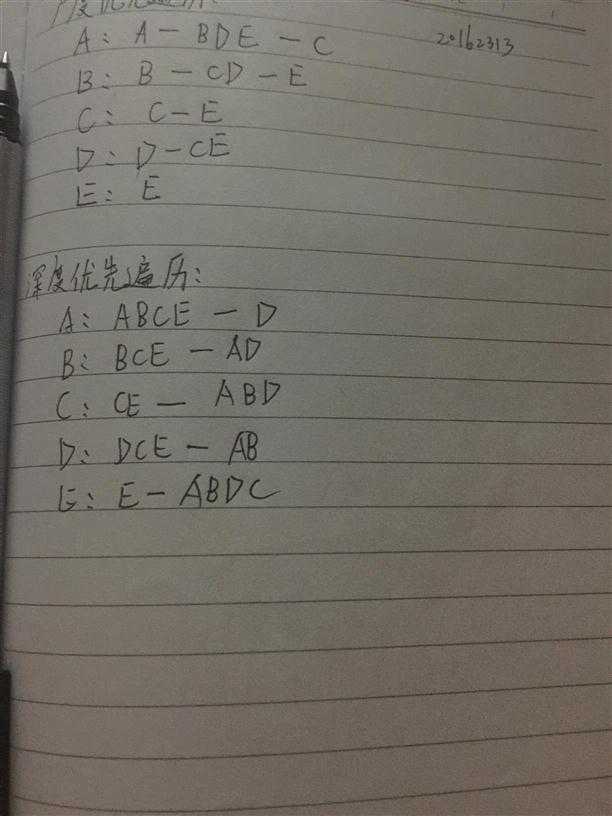 广度优先遍历:
A: A — BDE — C
20162313
B: B — CD — E
C: C — E
D: D — CE
E: E
深度优先遍历:
A: ABCE — D
B: BCE — AD
C: CE — ABD
D: DCE — AB
E: E — ABDC